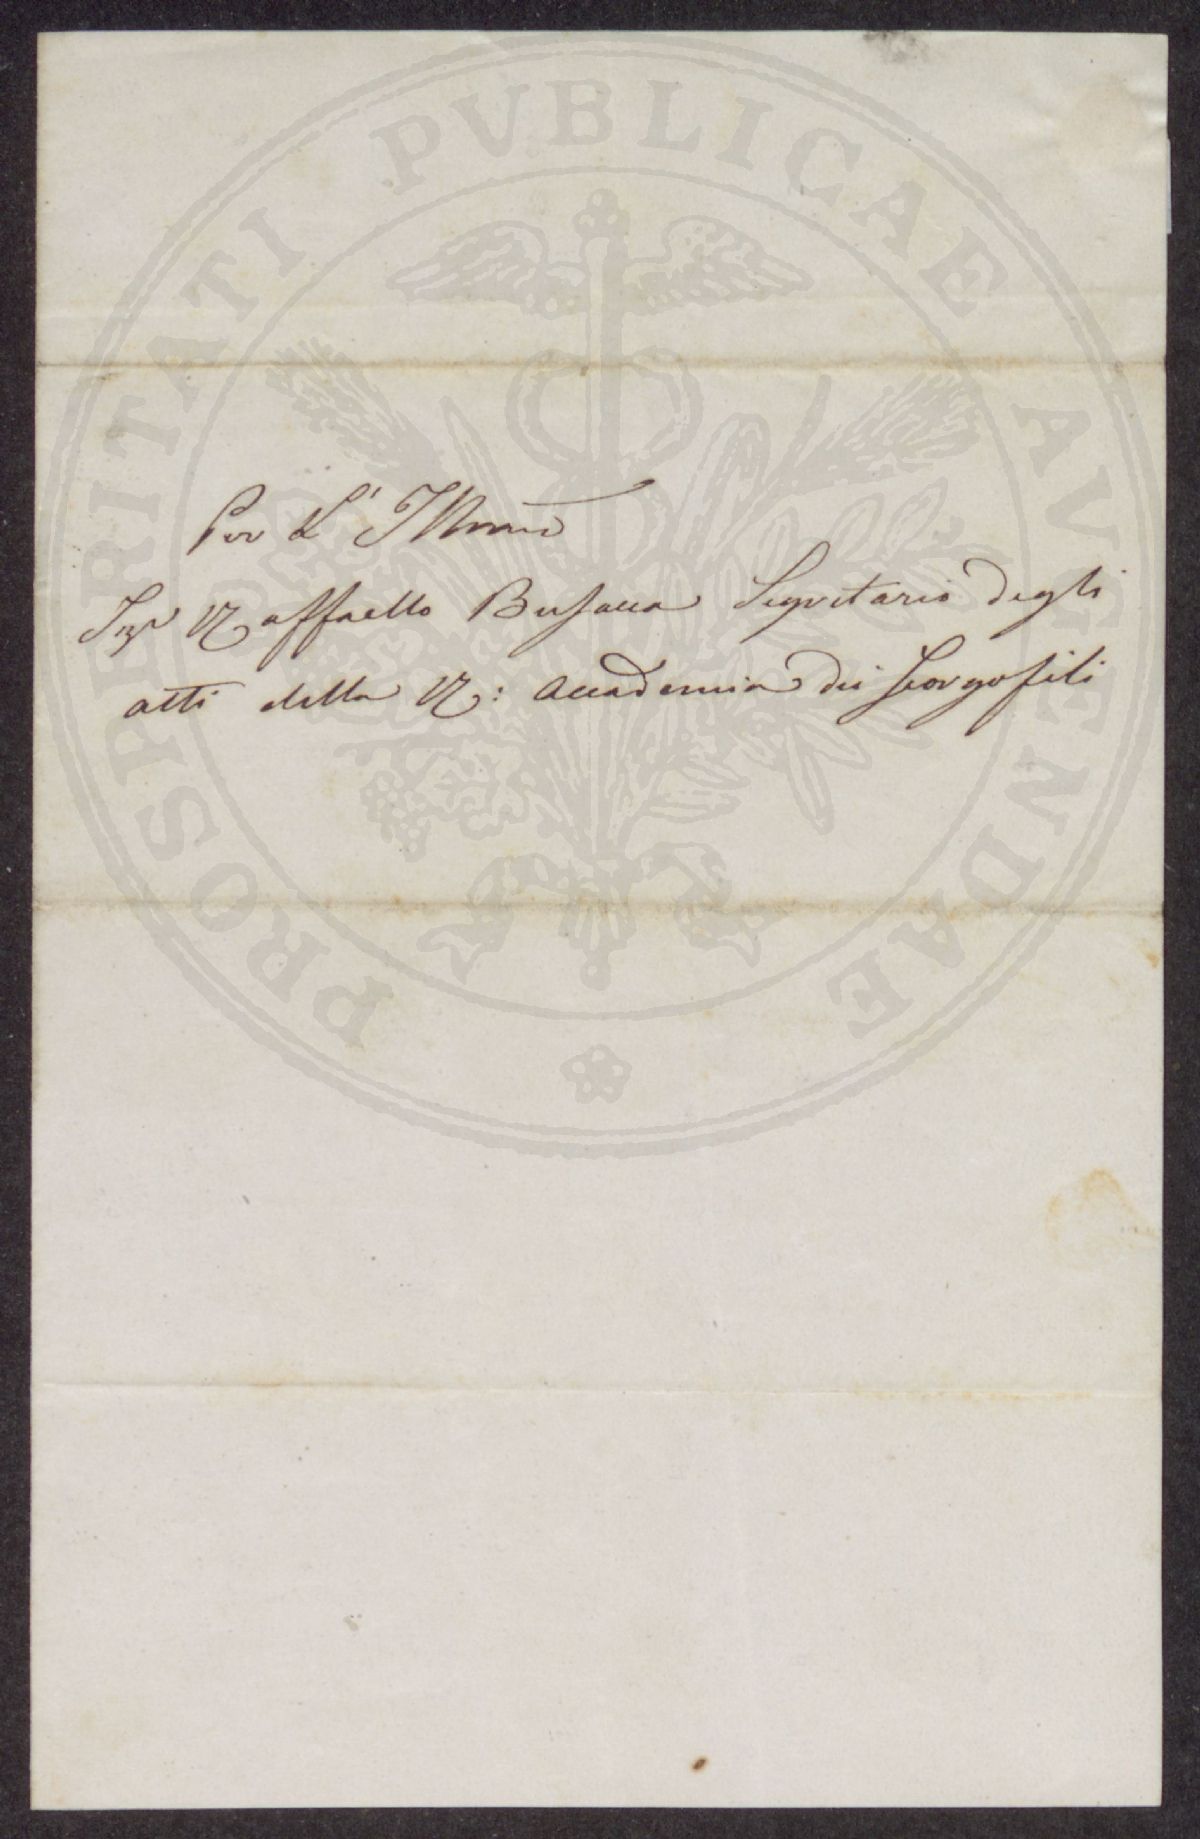 PROSPERITATI PVBLICAE AVGENDAE
Per L' Illmo
Sigr Raffaello Busacca Segretario degli
atti della R: Accademia dei Georgofili